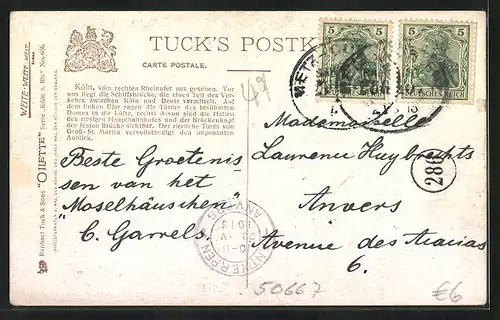 TUCK'S POSTK
CARTE POSTALE.
WIDE-WIDE-WORLD
Raphael Tuck & Sons "OILETTE" Serie Köln a. Rhein No. 606.
Köln, vom rechten Rheinufer aus gesehen. Vor
uns liegt die Schiffsbrücke, die einen Teil des Ver-
kehrs zwischen Köln und Deutz vermittelt. Auf
dem linken Ufer ragen die Türme des berühmten
Domes in die Lüfte, rechts davon sind die Hallen
des riesigen Hauptbahnhofes und der Brückenkopf
der festen Brücke sichtbar. Der zierliche Turm von
Groß-St. Martin vervollständigt den imposanten
Anblick.
49
5 5
5 5
DEUTSCHES REICH
METZ
Beste Groetenis-
sen van het
"Moselhäuschen"
C. Garrels.
ANTWERPEN
ANVERS
1913
Mademoiselle
Laurence Huybrechts
Anvers
Avenue des Acacias
6.
280
50667
€6